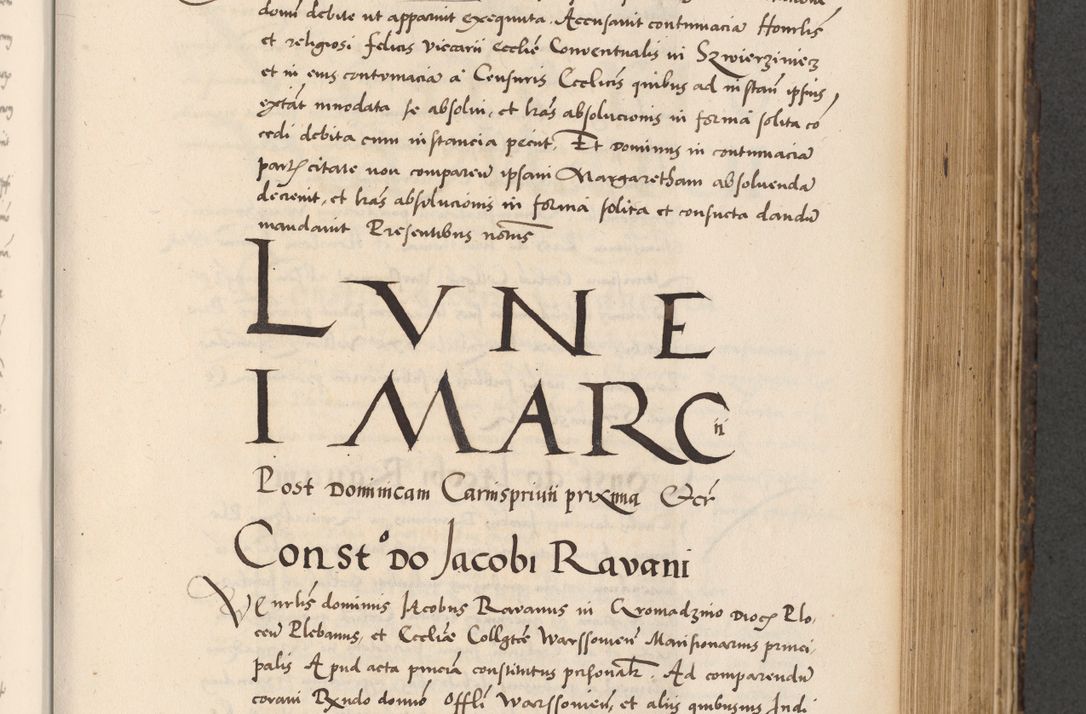 domi debite ut apparuit exequuta. Accusavit contumacia Honrlis
et religiosi felicis viccarii ecclie Conventualis in Szwierziniecz
et in eius contumacia a Censuris Ecclicis quibus ad instan ipsius
extat innodata se absolvi, et lras absolucionis in forma solita co
cedi debita cum instancia peciit. Et dominus in contumacia
partis citate non comparen ipsam Margaretham absolvenda
decrevit, et lras absolucionis in forma solita et consueta dandu
mandavit Presentibus notis
LVNE
I MARCii
Post Dominicam Carnisprivii prixma Etcr
Constº DO Jacobi Ravani
Venrlis dominus Jacobus Ravanus in Gromadzino Dioc Plo,
cen Plebanus, et Ecclie Collgte Warssovien Mansionarius princi
palis Apud acta princia constitutus prsonalr. Ad comparendu
coram Rxndo domno Offli Warssovien, et aliis quibusvis Judi